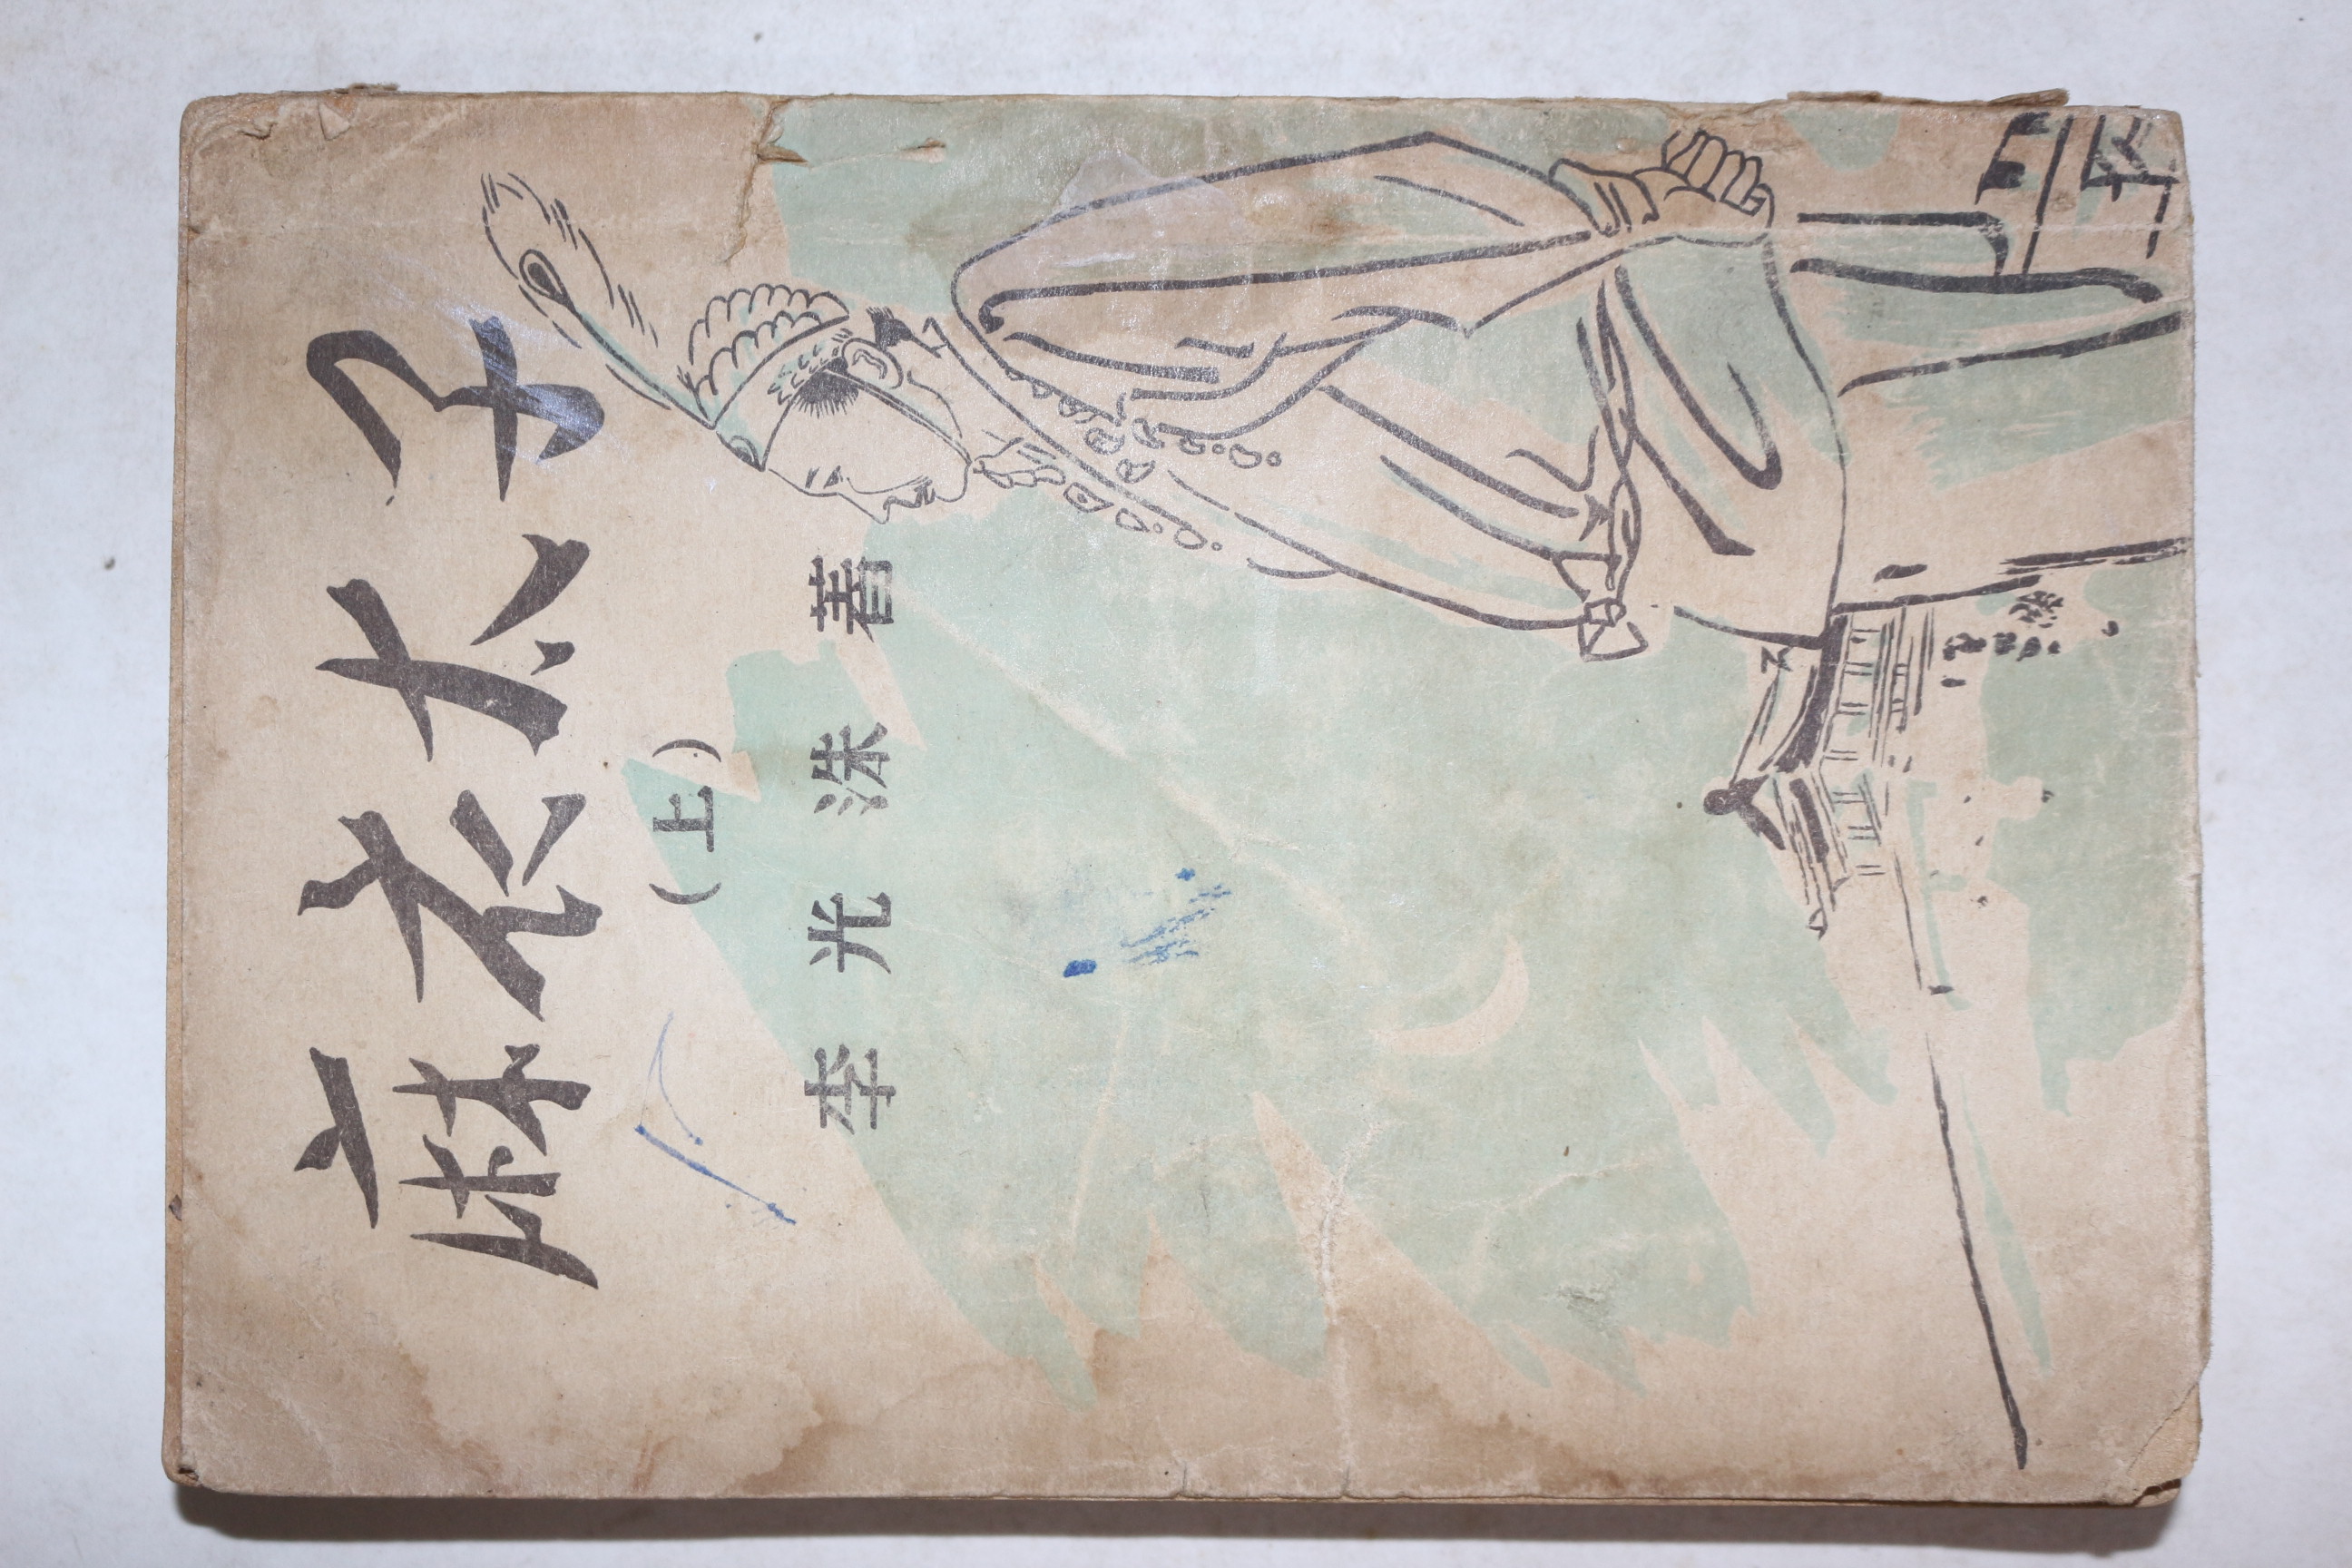 麻衣太子
(上)
李光洙 著